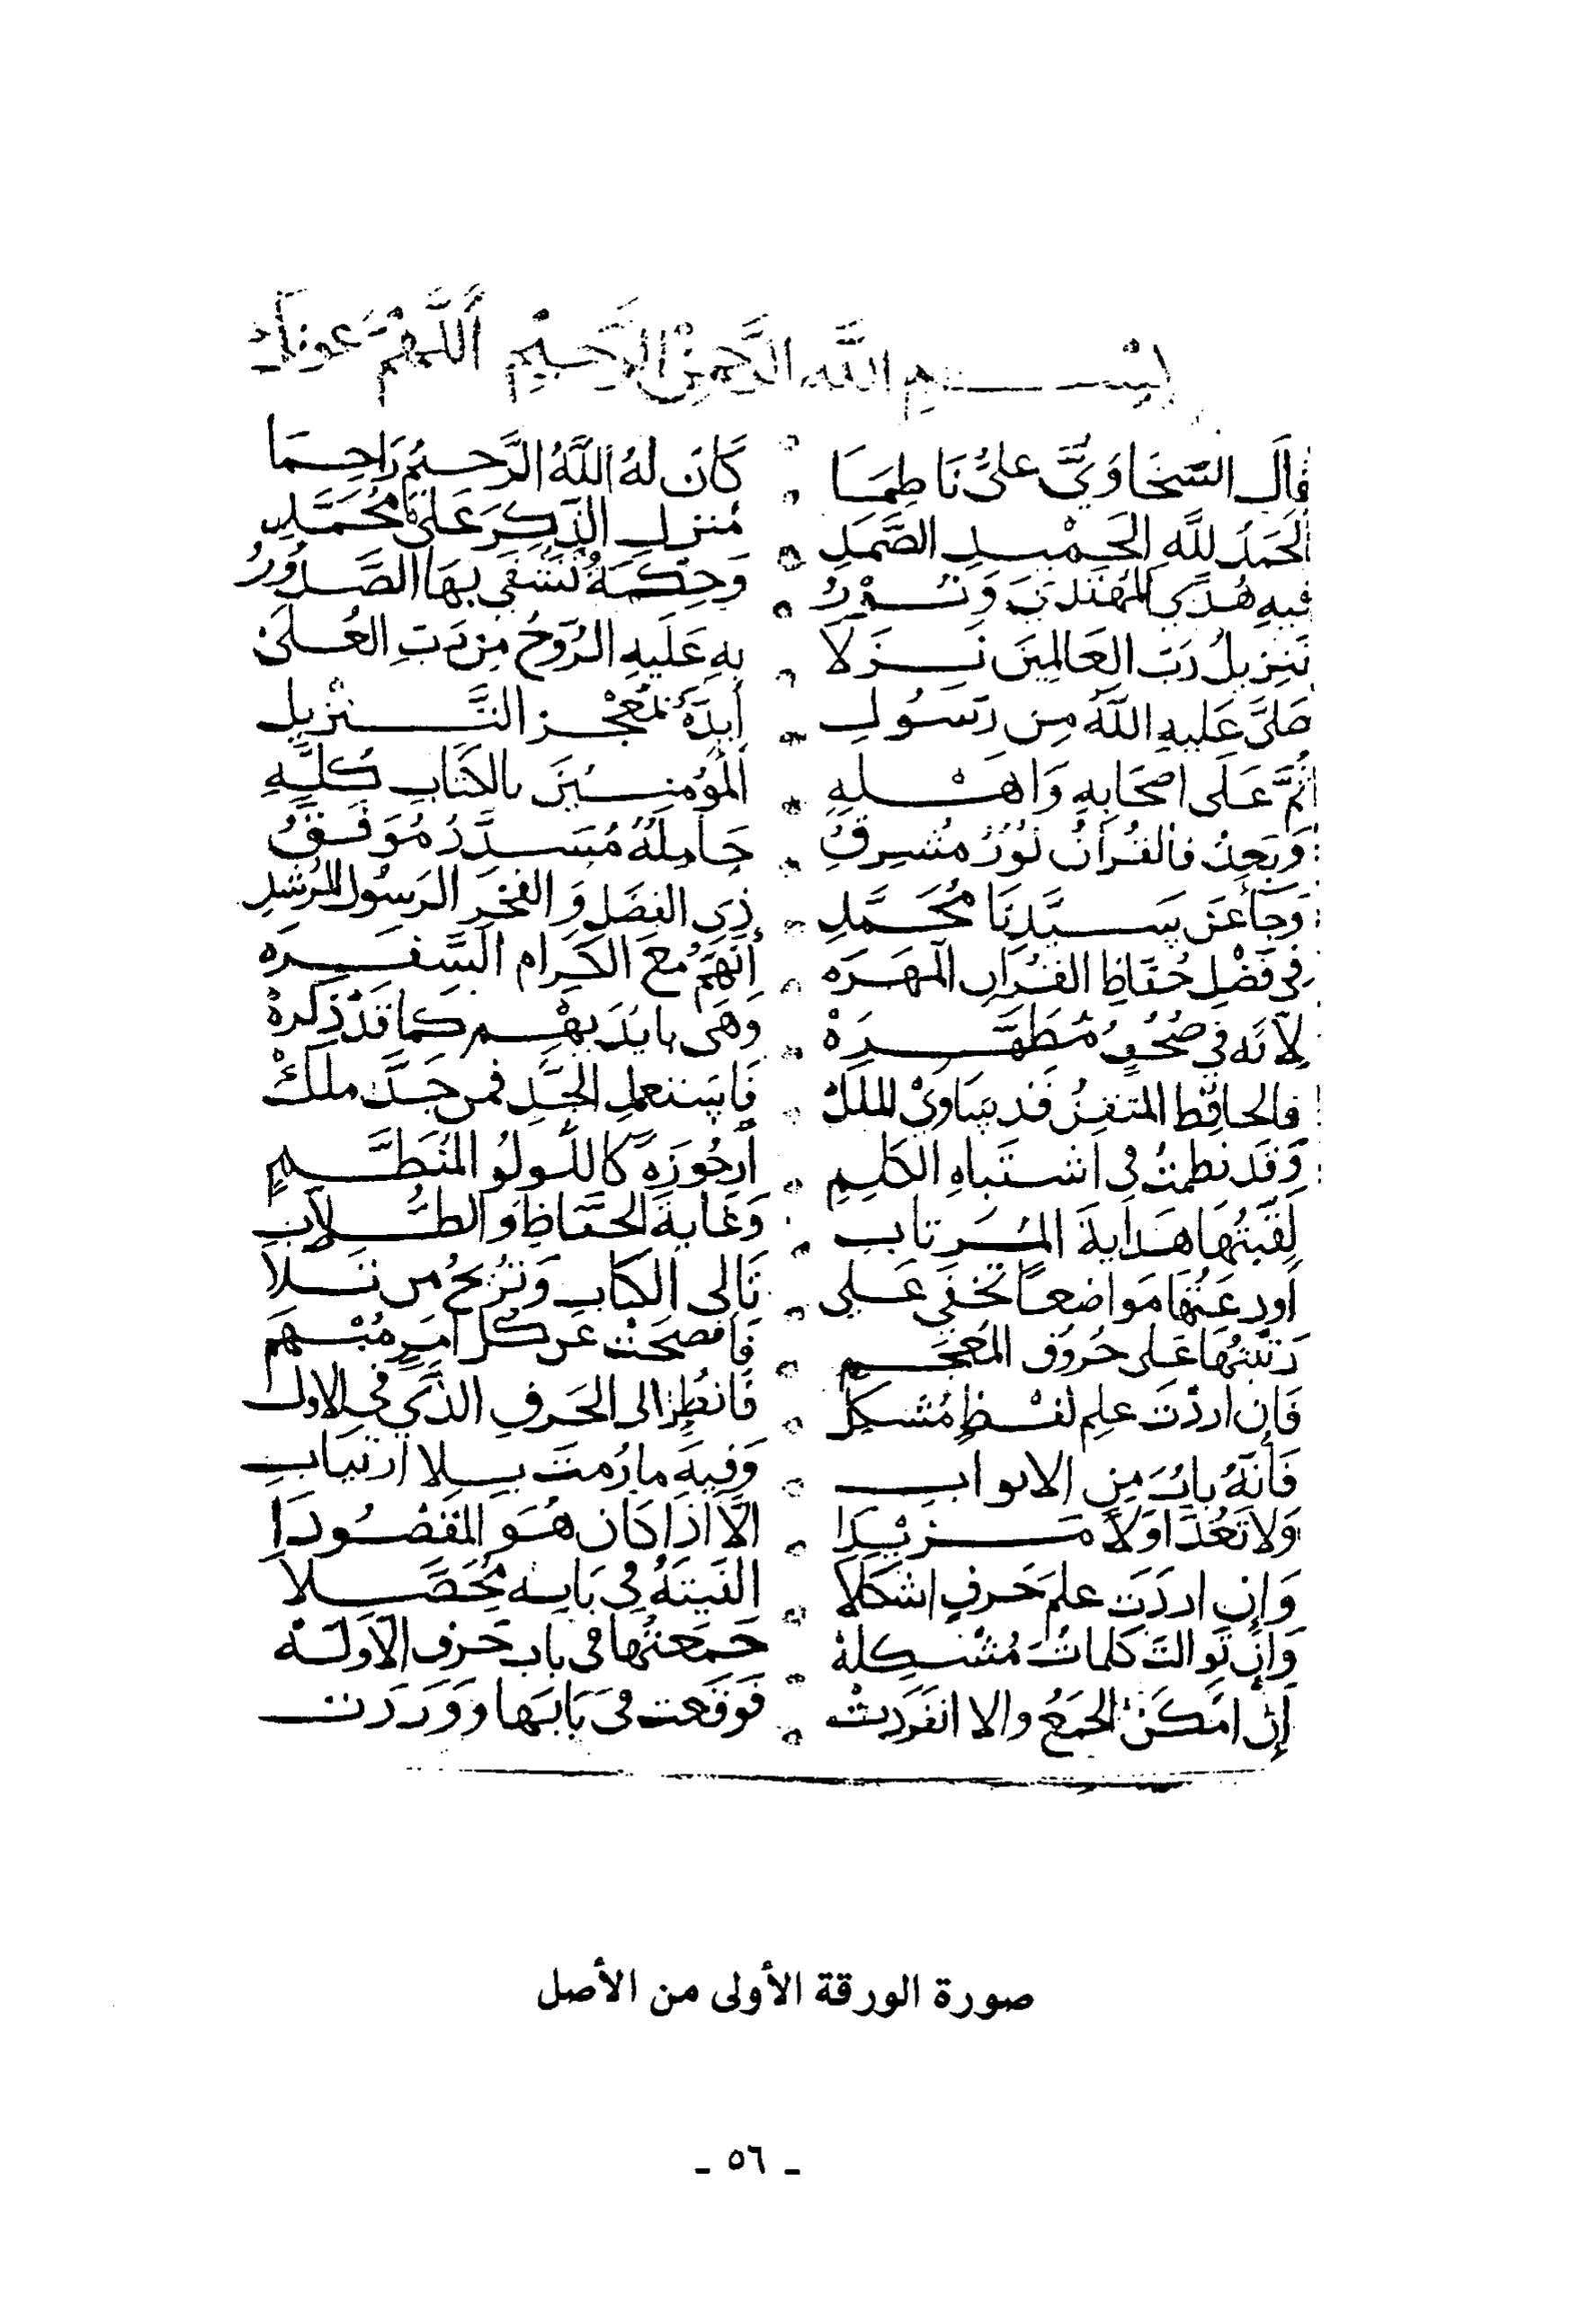 بِسْمِ اللَّهِ الرَّحْمَنِ الرَّحِيمِ اَللَّهُمَّ عَونَكَ
قَالَ السَّخَاوِيُّ عَلِيٌّ نَاظِمَا ۞ كَانَ لَهُ اللَّهُ الرَّحِيمُ رَاحِمَا
الحَمدُ لِلَّهِ الحَمِيدِ الصَّمَدِ ۞ مُنزِلِ الذِّكرِ عَلَى مُحَمَّدِ
فيهِ هُدًى لِلمُهتَدِي وَنُورُ ۞ وَحِكمَةٌ تُشْفَى بِهَا الصُّدُورُ
تَنزِيلُ رَبِّ العَالَمِينَ نَزَلَا ۞ بِهِ عَلَيهِ الرُّوحُ مِن رَبِّ العُلَى
صَلَّى عَلَيهِ اللَّهُ مِن رَسُولِ ۞ أَيَّدَهُ بِمُعْجِزِ التَّنْزِيلِ
ثُمَّ عَلَى اصحَابِهِ وَاهْلِهِ ۞ المُؤمِنِينَ بالكِتَابِ كُلِّهِ
وَبَعدُ فَالقُرآنُ نُورٌ مُشرِقُ ۞ حَامِلُهُ مُسَدَّدٌ مُوَفَّقُ
وَجَا عَن سَيِّدِنَا مُحَمَّدِ ۞ ذِي الفَضلِ وَالفَخرِ الرَسُولِ المُرشِدِ
فِي فَضْلِ حُفَّاظِ القُرَانِ المَهَرَه ۞ أَنَّهُمُ مَعَ الكِرَامِ السَّفَرَه
لِأَنَّه في صُحُفٍ مُطَهَّرَهْ ۞ وَهْيَ بايْدِيهِمْ كما قَدْ ذَكَرَهْ
فالحافِظُ المتقِنُ قَد يُسَاوِيْ المَلَكْ ۞ فَاستَعمِلِ الجِدَّ فَمن جَدَّ مَلَكْ
وَقَد نَظمتُ في اشتِبَاهِ الكَلِمِ ۞ أُرجُوزَةً كَاللُّولُوِ المُنَظَّمِ
لَقَّبتُهَا هِدَايَةَ المُرتابِ ۞ وَغَايَةَ الحُفَّاظِ وَالطُّلَّابِ
أَودَعتُهَا مَوَاضعًا تَخفَى عَلى ۞ تَالِي الكِتَابِ وَتُرِيحُ مَن تَلَا
رَتَّبتُهَا عَلى حُرُوفِ المُعجَمِ ۞ فَأَفصَحَتْ عَن كُلِّ امرٍ مُبْهَمِ
فَان اردْتَ عِلمَ لَفظٍ مُشكِلِ ۞ فَانظُر الى الحَرفِ الذي في الاولِ
فَأنَّهُ بابٌ مِنَ الابوابِ ۞ وَفِيهِ ما رُمتَ بِلا ارتيابِ
وَلا تَعُدَّ اوَّلا مَزِيْدَا ۞ الَّا اذَا كان هُوَ المَقصُودَا
وَإن اردَتَ علمَ حَرفٍ اشكَلَا ۞ الفَيتَهُ في بَابِه مُحَصَّلا
وَانْ تَوالت كَلماتٌ مُشْكِلهْ ۞ جَمَعتُها في باب حَرفِ الاوَّلَهْ
إن امكَنَ الجَمعُ والا انفَرَدَتْ ۞ فَوَقَعت في بَابِهَا وَوَرَدَت
صورة الورقة الأولى من الأصل
ـ ٥٦ ـ